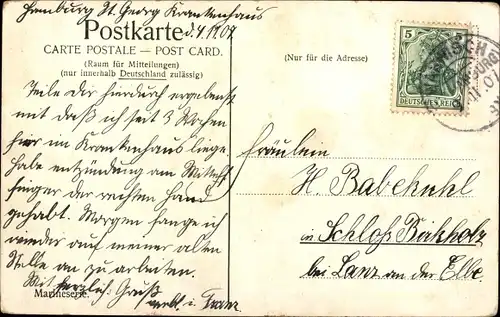 Hamburg St. Georg Krankenhaus
Postkarte
CARTE POSTALE — POST CARD.
(Raum für Mitteilungen)
(nur innerhalb Deutschland zulässig)
Teile Dir hierdurch ergebenst
mit daß ich seit 3 Wochen
hier im Krankenhaus liege
habe entzündung am Mittel
finger der rechten Hand
gehabt. Morgen fange ich
wieder auf meiner alten
Stelle an zu arbeiten.
Mit herzlich. Gruß
Franz
Marineserie.
(Nur für die Adresse)
5
DEUTSCHES REICH
Fräulein
H. Babekuhl
in Schloß Buchholz
bei Lanz an der Elbe.